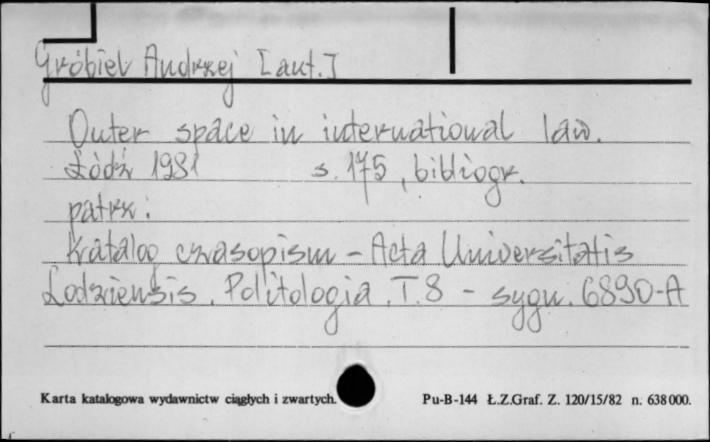 Gróbiel Andrzej [aut.]
Outer space in international law.
Łódź 1981 s. 175, bibliogr.
patrz:
Katalog czasopism - Acta Universitatis
Lodziensis, Politologia, T. 8 - sygn. 6890-A
Karta katalogowa wydawnictw ciągłych i zwartych. Pu-B-144 Ł.Z.Graf. Z. 120/15/82 n. 638000.